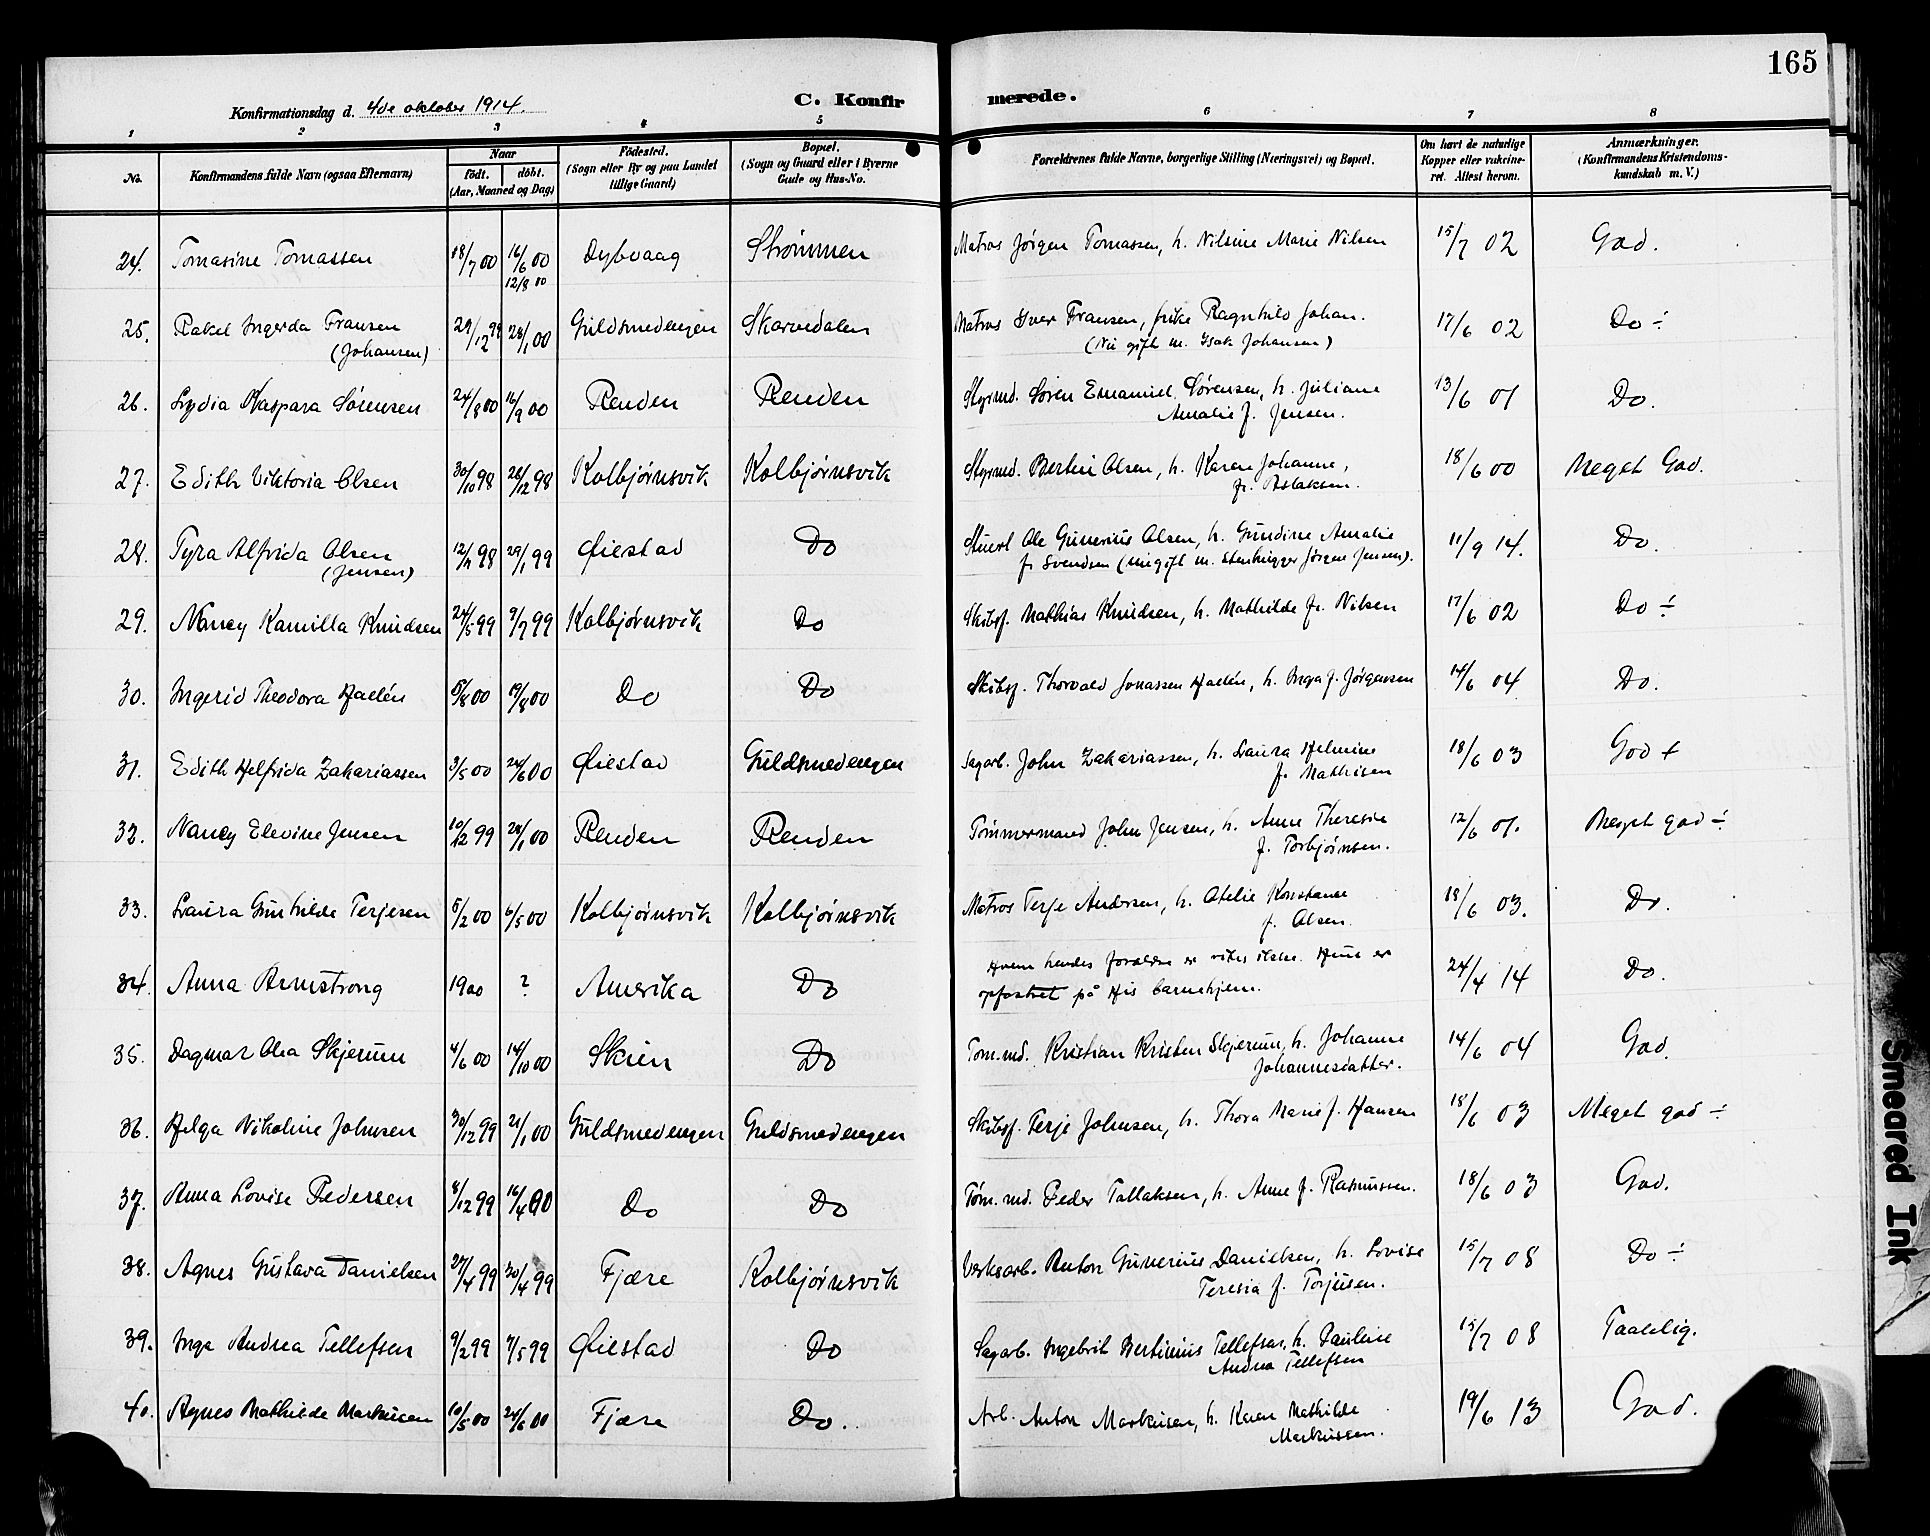 165
Konfirmationsdag d. 4de oktober 1914.
C. Konfirmerede.
1 2 3 4 5 6 7 8
No.
Konfirmandens fulde Navn (ogsaa Efternavn)
Naar
født. døbt.
(Aar, Maaned og Dag)
Fødested.
(Sogn eller By og paa Landet
tillige Gaard)
Bopæl.
(Sogn og Gaard eller i Byerne
Gade og Hus-No.
Forældrenes fulde Navne, borgerlige Stilling (Næringsvei) og Bopæl.
Om havt de naturlige
Kopper eller vakcine-
ret. Attest herom.
Anmærkninger.
(Konfirmandens Kristendoms-
kundskab m. V.)
24. Tomasine Tomassen 18/7 00 16/6 00 Dybvaag Strømmen Matros Jørgen Tomassen, h. Nilsine Marie Nilsen 15/7 02 God.
12/8 00
25. Rakel Ingerda Fransen 29/12 99 28/1 00 Guldsmedengen Skarvedalen Matros Iver Fransen, pike Ragnhild Johan. 17/6 02 Do ÷
(Johansen) (Nu gift m. Isak Johansen)
26. Lydia Kaspara Sørensen 24/8 00 16/9 00 Renden Renden Styrmd. Søren Emanuel Sørensen, h. Juliane 13/6 01 Do.
Amalie f. Jensen.
27. Edith Viktoria Olsen 30/10 98 28/12 98 Kolbjørnsvik Kolbjørnsvik Styrmd. Bertin Olsen, h. Karen Johanne, 18/6 00 Meget God.
f. Aslaksen.
28. Tyra Alfrida Olsen 98 29/1 99 Øiestad Do Stuert Ole Gunerius Olsen, h. Gundine Amalie 11/9 14. Do.
(Jensen) f. Svendsen (nu gift m. Stenhugger Jørgen Jensen).
29. Nancy Kamilla Knudsen 24/5 99 9/7 99 Kolbjørnsvik Do Skibsf. Mathias Knudsen, h. Mathilde f. Nilsen 17/6 02 Do ÷
30. Ingerid Theodora Hallén 5/8 00 19/8 00 Do Do Skibsf. Thorvald Jonassen Hallén, h. Inga f. Jørgensen 14/6 04 Do.
31. Edith Helfrida Zakariassen 3/5 00 24/6 00 Øiestad Guldsmedengen Sagarb. John Zakariassen, h. Laura Helmine 18/6 03 God +
f. Mathisen
32. Nancy Elevine Jensen 10/12 99 28/1 00 Renden Renden Tømmermand John Jensen, h. Anne Theresie 12/6 01. Meget god ÷
f. Torbjørnsen.
33. Laura Gunhilde Terjesen 5/2 00 6/5 00 Kolbjørnsvik Kolbjørnsvik Matros Terje Andersen, h. Otelie Konstanse 18/6 03. Do.
f. Olsen.
34. Anna Armstrong 1900 ? Amerika Do Hvem hendes forældre er vites ikke. Hun er 24/4 14 Do.
opfostret på His barnehjem.
35. Dagmar Olea Skjerum 4/6 00 14/10 00 Skien Do Tøm.md. Kristian Kristen Skjerum, h. Johanne 14/6 04 God.
Johannesdatter.
36. Helga Nikoline Johnsen 30/12 99 21/1 00 Guldsmedengen Guldsmedengen Skibsf. Terje Johnsen, h. Thora Marie f. Hansen 18/6 03 Meget god ÷
37. Anna Lovise Pedersen 8/12 99 16/4 00 Do Do Tøm. md. Peder Tallaksen, h. Anne f. Rasmussen. 18/6 03 God.
38. Agnes Gustava Danielsen 27/4 99 30/4 99 Fjære Kolbjørnsvik Verksarb. Anton Gunerius Danielsen, h. Lovise 15/7 08 Do ÷
Teresia f. Torjusen.
39. Inga Andrea Tellefsen 9/2 99 7/5 99 Øiestad Do Sagarb. Ingebrit Bertinius Tellefsen, h. Pauline 15/7 08 Taalelig.
Andrea Tellefsen
40. Agnes Mathilde Markusen 10/5 00 24/6 00 Fjære Do. Arb. Anton Markusen, h. Karen Mathilde 19/6 13 God.
Markussen.
Smeared Ink